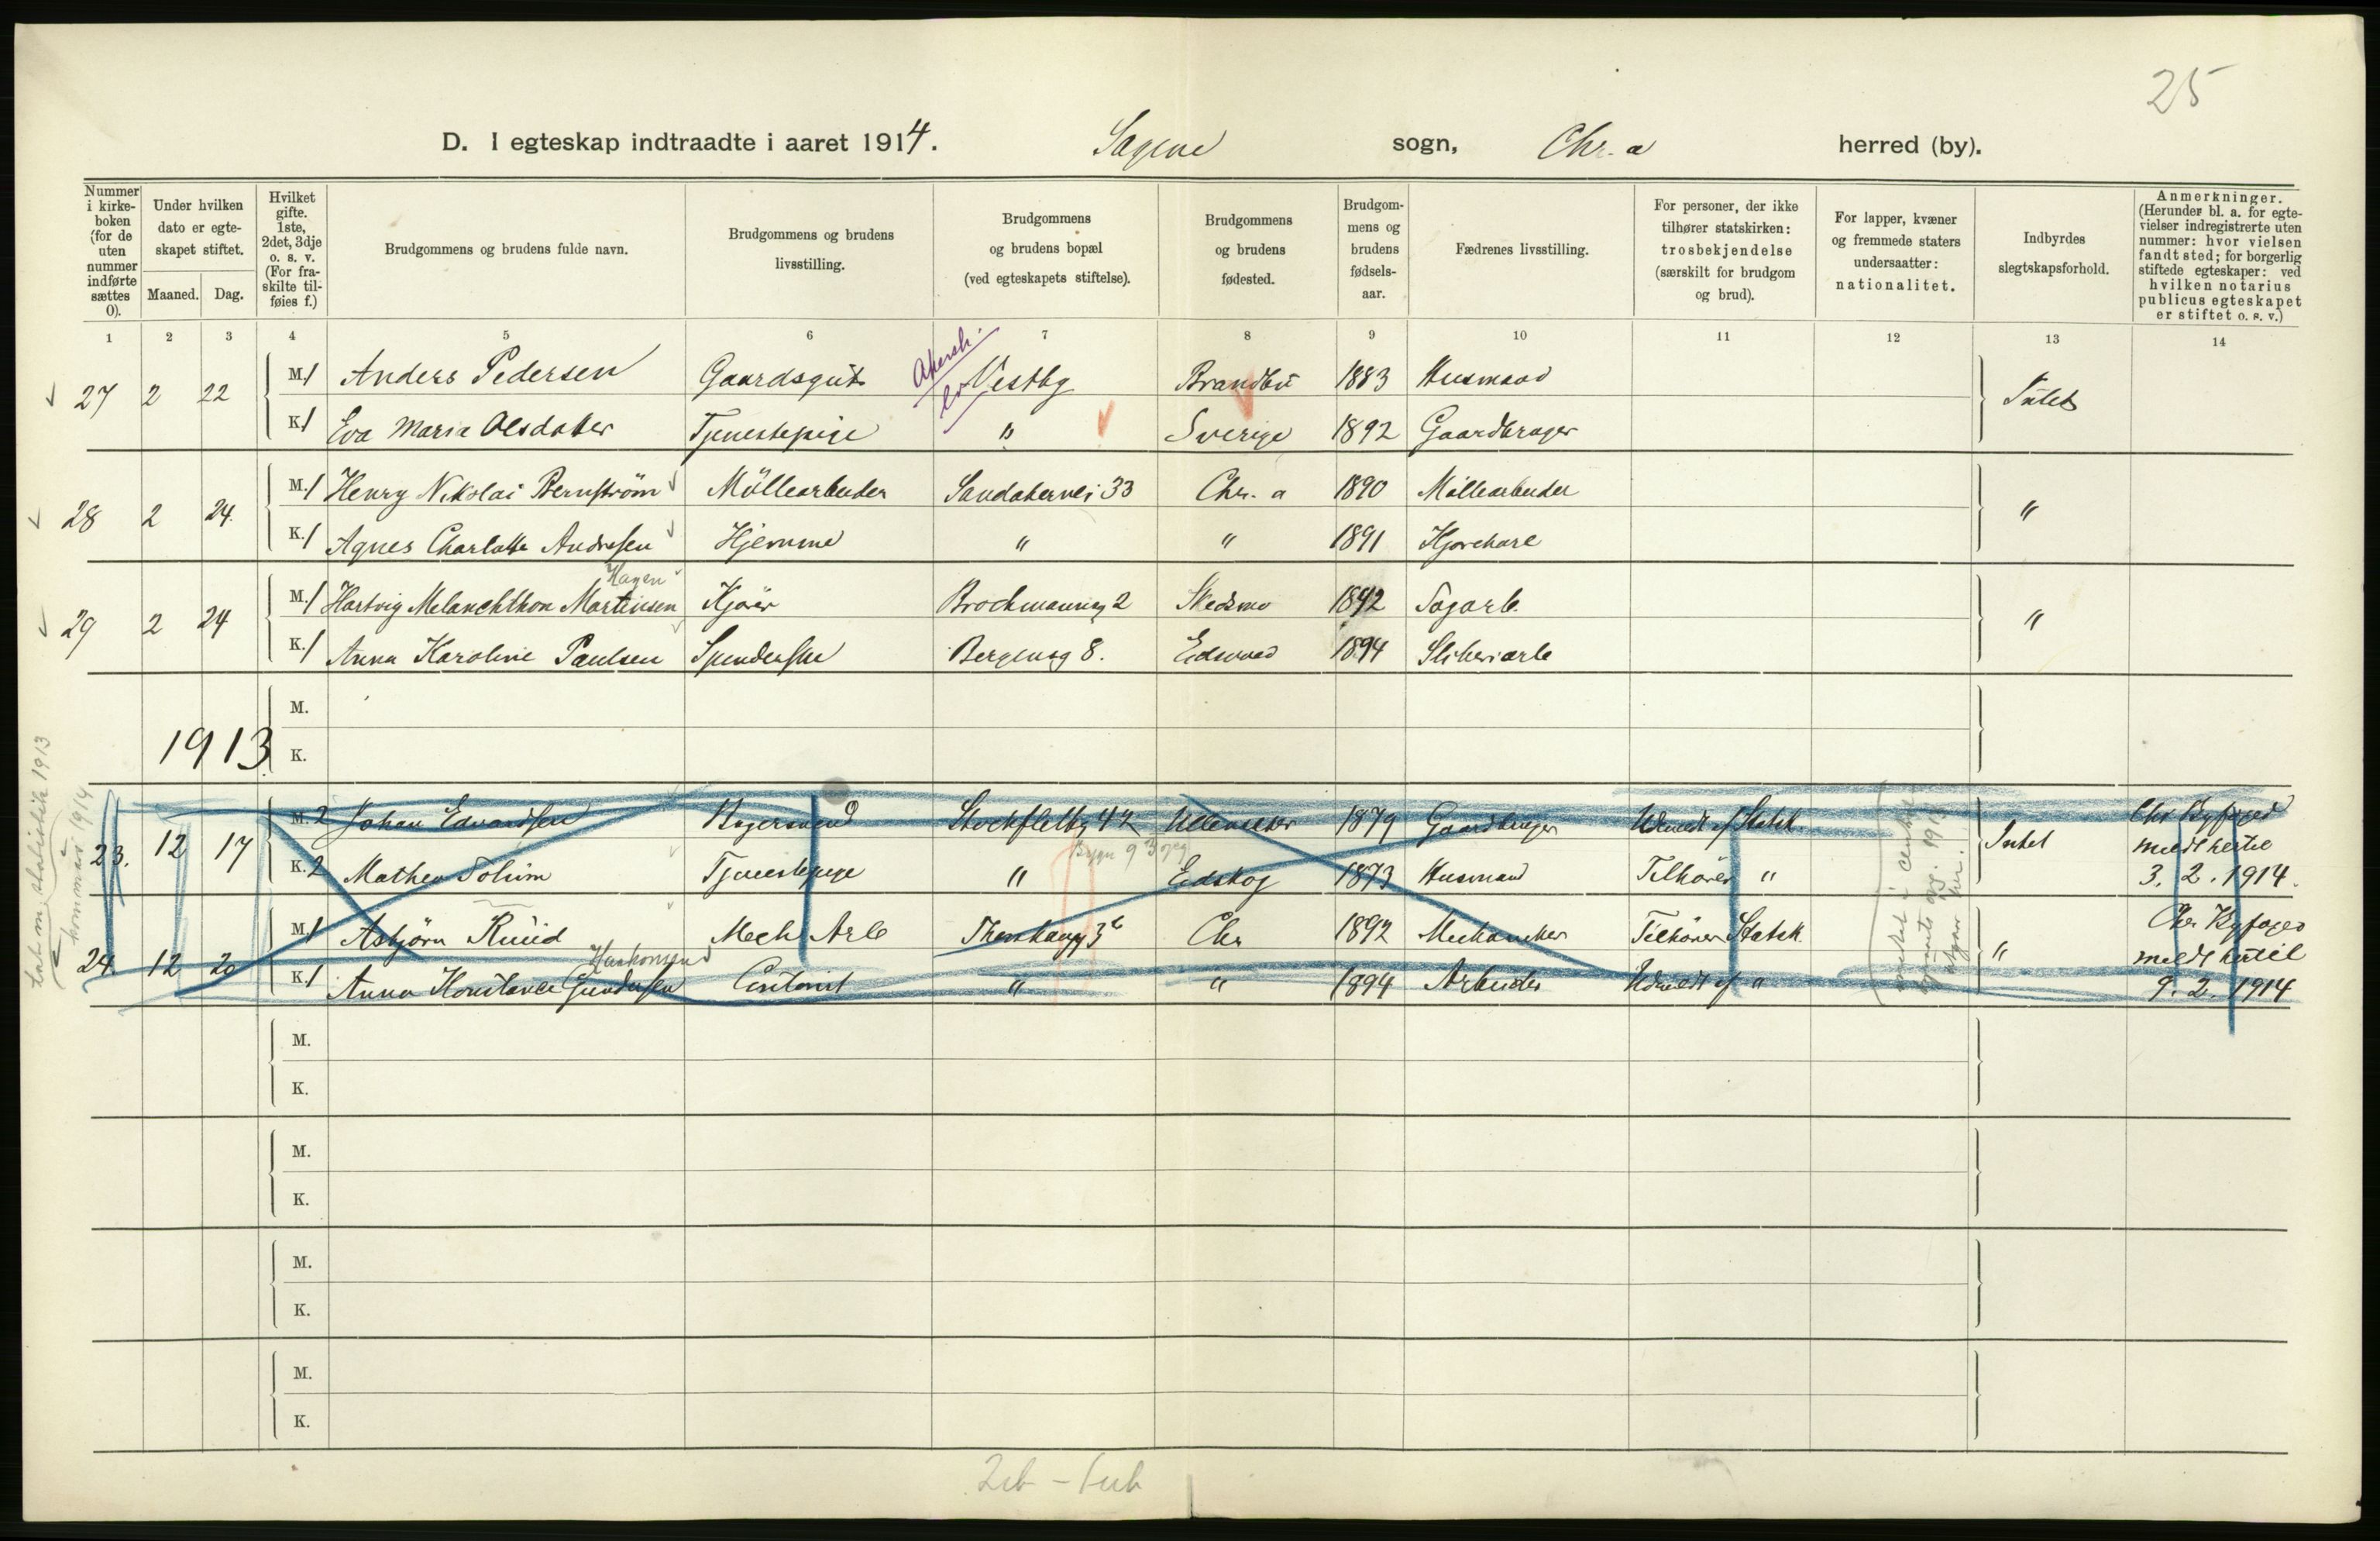 25
D. I egteskap indtraadte i aaret 1914. Sagene sogn, Chr. a herred (by).
Nummer i kirkeboken (for de uten nummer indførte sættes 0).
Under hvilken dato er egteskapet stiftet.
Maaned. Dag.
Hvilket gifte. 1ste, 2det, 3dje o. s. v. (For fraskilte tilføies f.)
Brudgommens og brudens fulde navn.
Brudgommens og brudens livsstilling.
Brudgommens og brudens bopæl (ved egteskapets stiftelse).
Brudgommens og brudens fødested.
Brudgommens og brudens fødselsaar.
Fædrenes livsstilling.
For personer, der ikke tilhører statskirken: trosbekjendelse (særskilt for brudgom og brud).
For lapper, kvæner og fremmede staters undersaatter: nationalitet.
Indbyrdes slegtskapsforhold.
Anmerkninger. (Herunder bl. a. for egtevielser indregistrerte uten nummer: hvor vielsen fandt sted; for borgerlig stiftede egteskaper: ved hvilken notarius publicus egteskapet er stiftet o. s. v.)
1 2 3 4 5 6 7 8 9 10 11 12 13 14
27 2 22 M. 1 Anders Pedersen Gaardsgut Vestby Brandbu 1883 Husmand Intet
K. 1 Eva Maria Olsdatter Tjenestepige " Sverige 1892 Gaardbruger
28 2 24. M. 1 Henry Nikolai Bernström Möllearbeider Sandakervei 33 Chr. a 1890 Möllearbeider "
K. 1 Agnes Charlotte Andresen Hjemme " " 1891 Kjørekarl
Hagen
29 2 24 M. 1 Hartvig Melanchthon Martinsen Kjörer Brochmannsg 2 Skedsmo 1892 Sagarb. "
K. 1 Anna Karoline Paulsen Spinderske Bergensg 8. Eidsvold 1894 Sliberiarb
M.
1913 K.
23. 12 17 M. 2 Johan Edvardsen Bryersvend Stockfletsg 42 Ullensaker 1879 Gaardbruger Udmeldt af Statsk. Intet Chr Byfoged
K. 2 Mathea Solum Tjenestepige " Eidskog 1873 Husmand Tilhører " meldt hertil
3. 2. 1914.
24. 12 20 M. 1 Asbjörn Ruud Mech Arb 3 Chr 1892 Mechaniker Tilhører Statsk. " Chr Byfoged
Haakonsen
K. 1 Anna Konstance Gundersen " " 1894 Arbeider Udmeldt af " meldt hertil
9. 2. 1914
tat m. statistik 1913
M.
K.
M.
K.
M.
K.
M.
K.